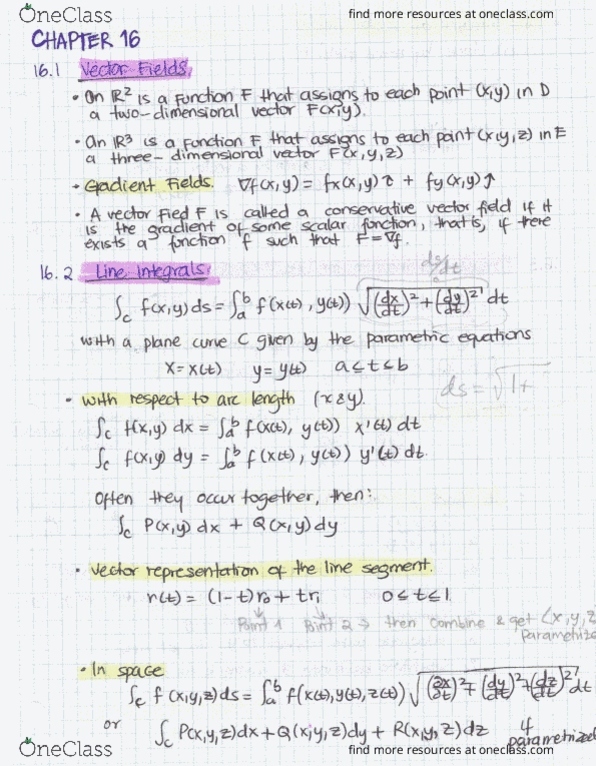 OneClass find more resources at oneclass.com
CHAPTER 16
16.1 Vector Fields
• On ℝ² is a function F that assigns to each point (x,y) in D
a two-dimensional vector F(x,y).
• On ℝ³ is a function F that assigns to each point (x,y,z) in E
a three-dimensional vector F(x,y,z)
• Gradient Fields. ∇f(x,y) = fx(x,y)î + fy(x,y)ĵ
• A vector Fied F is called a conservative vector field if it
is the gradient of some scalar function, that is, if there
exists a function f such that F=∇f.
16.2 Line Integrals
ds/dt
∫c f(x,y)ds = ∫a^b f(x(t), y(t)) √((dx/dt)²+(dy/dt)²) dt
with a plane curve C given by the parametric equations
x=x(t) y=y(t) a≤t≤b
ds = √1+
• with respect to arc length (x & y).
∫c f(x,y) dx = ∫a^b f(x(t), y(t)) x'(t) dt
∫c f(x,y) dy = ∫a^b f(x(t), y(t)) y'(t) dt.
Often they occur together, then:
∫c P(x,y) dx + Q(x,y) dy
• Vector representation of the line segment.
r(t) = (1-t)r₀ + tr₁ 0≤t≤1
Point 1 Point 2 → then combine & get <x,y,z
parametriz
• In space
∫c f(x,y,z)ds = ∫a^b f(x(t),y(t),z(t)) √((dx/dt)²+(dy/dt)²+(dz/dt)²) dt
or ∫c P(x,y,z)dx+Q(x,y,z)dy + R(x,y,z)dz if
parametrized
OneClass find more resources at oneclass.com